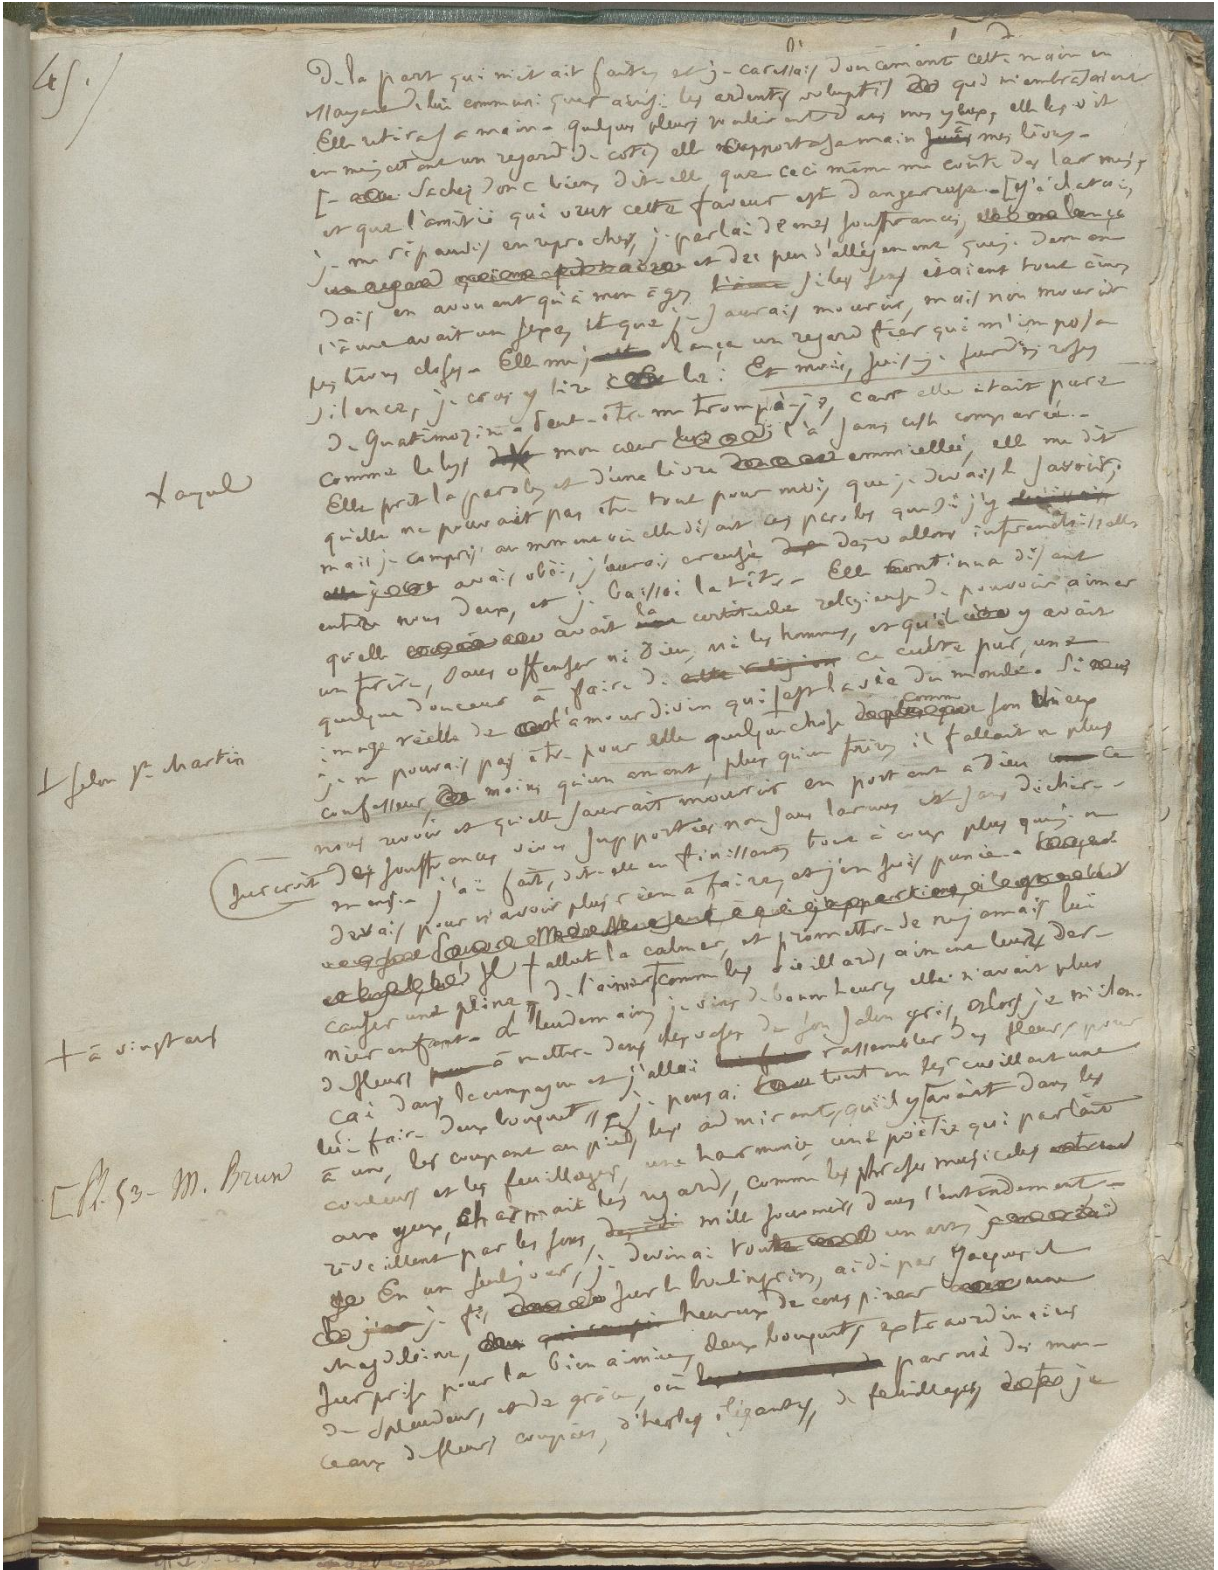 45.
de la part qui m'était faite, et je caressais doucement cette main en
essayant de lui communiquer ainsi les ardentes voluptés qui m'embrasaient
Elle retira sa main. quelques pleurs roulèrent dans mes yeux, elle les vit
en me jettant un regard de coté, elle rapporta sa main mes lèvres.
[- Sachez donc bien, dit-elle, que ceci même me coûte des larmes,
et que l'amitié qui veut cette faveur est dangereuse. [j'éclatai,
je me répandis en reproches, je parlai de mes souffrances, elle me lança
un regard et du peu d'allégement que je deman
dais en avouant qu'à mon age, si les sens étaient tout âme,
l'âme avait un sexe, et que je saurais mourir, mais non mourir
les lèvres closes. Elle me lança un regard fier qui m'imposa
silence, je crus y lire : Et moi, suis-je sur des roses
de Guatimozin. Peut-être me trompé-je, car elle était pure
comme le lys mon cœur l'a sans cesse comparée.
Elle prit la parole, et d'une lèvre emmiellée, elle me dit
X ayeul
qu'elle ne pouvait pas être tout pour moi, que je devais le savoir,
mais je compris au moment où elle disait ces paroles que si j'y
avais obéi, j'aurais creusé des vallons infranchissables
entre nous deux, et je baissai la tête. Elle continua disant
qu'elle avait la certitude religieuse de pouvoir aimer
un frère, sans offenser ni Dieu, ni les hommes, et qu'il y avait
quelque douceur à faire de ce culte pur, une
image réelle de l'amour divin qui est la vie du monde. Si
┴ selon St Martin
je ne pouvais pas être pour elle quelque chose comme son vieux
confesseur, moins qu'un amant, plus qu'un frère, il fallait ne plus
nous revoir et qu'elle saurait mourir en portant à Dieu ce
surcroit de souffrances vives supportées non sans larmes et sans déchire-
mens. J'ai fait, dit-elle en finissant, tout à coup plus que je ne
devais pour n'avoir plus rien à faire, et j'en suis punie.
Il fallut la calmer, et promettre de ne jamais lui
causer une peine, de l'aimer comme les vieillards aiment leur der-
+ à vingt ans
nier enfant. Le lendemain, je vins de bonne heure, elle n'avait plus
de fleurs à mettre dans les vases de son salon gris, alors je m'élan-
çai dans la campagne et j'allai rassembler des fleurs pour
lui faire deux bouquets, je pensai tout en les cueillant une
à une, les coupant au pied, les admirant, qu'il y avait dans les
[fl. 53 - M. Brun
couleurs et les feuillages, une harmonie, une poësie qui parlant
aux yeux, charmait les regards, comme les phrases musicales
réveillent par les sons, mille souvenirs dans l'entendement.
En un seul jour, je devinai tout un art,
je fis sur le boulingrin, aidé par Jacques et
Magdeleine, heureux de conspirer une
surprise pour la bien aimée, deux bouquets extraordinaires
de splendeur, et de grâce, où parmi des mon-
ceaux de fleurs coupées, d'herbes élégantes, de feuillages, je